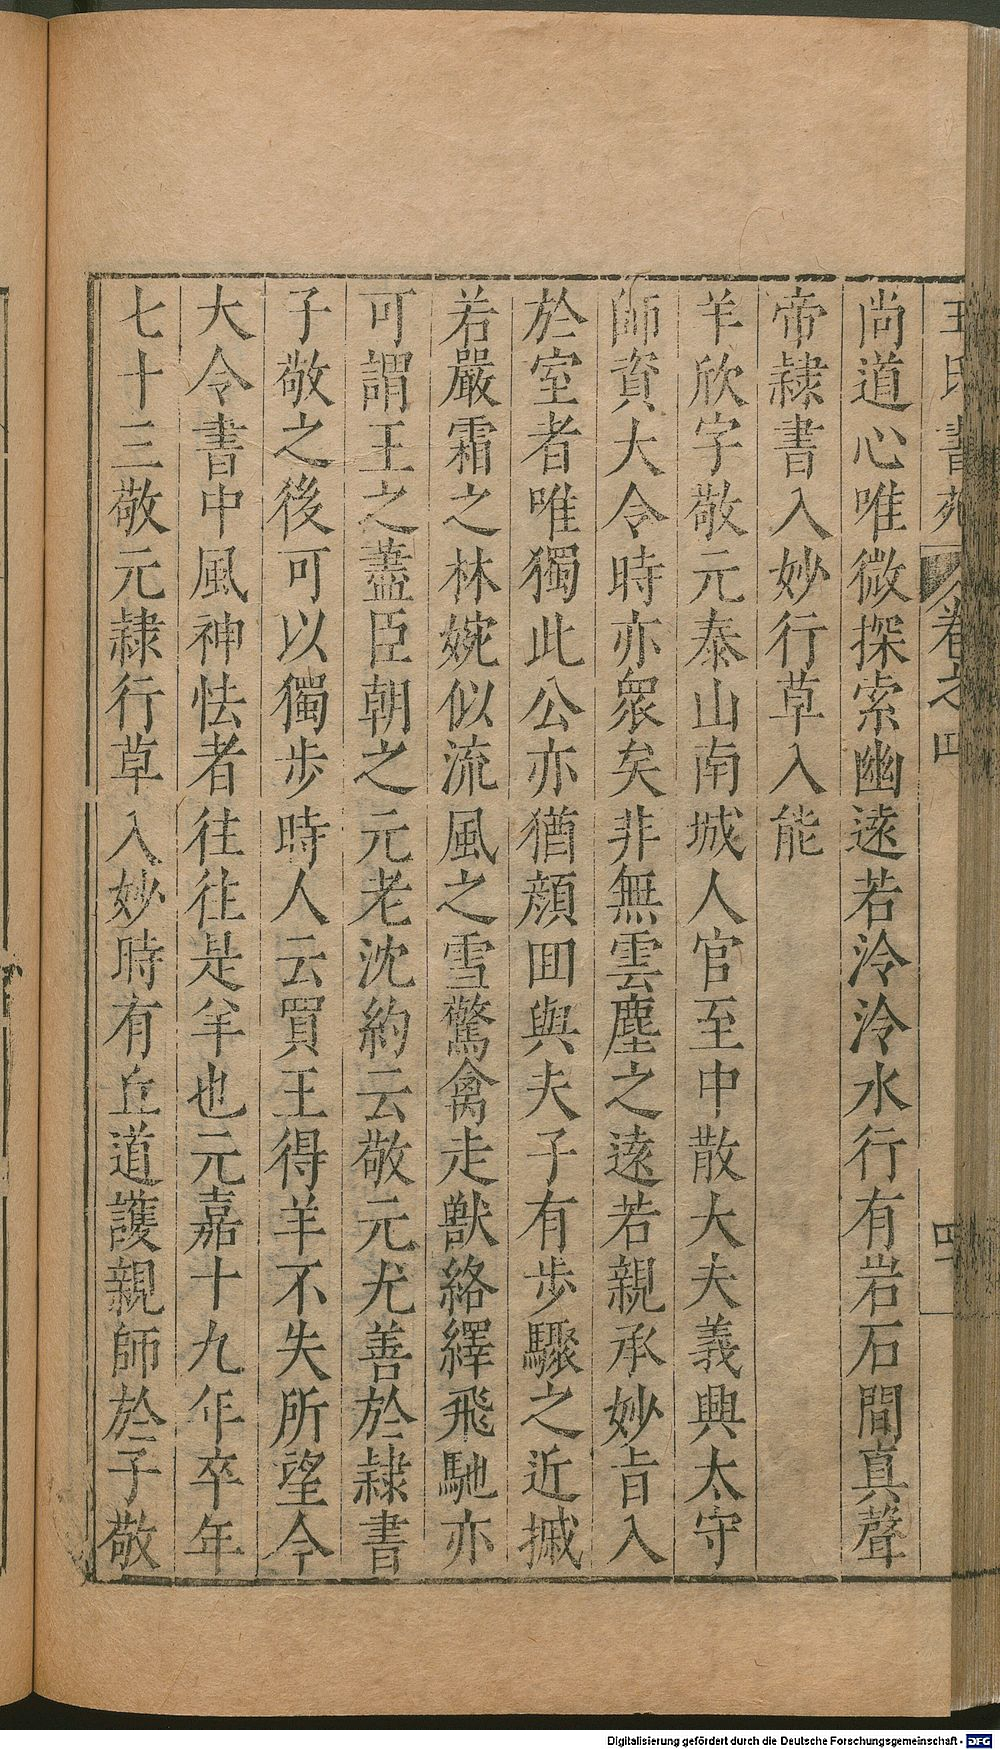 王氏書苑 卷之四 四
尚道心唯微探索幽遠若泠泠水行有岩石間真聲
帝隸書入妙行草入能
羊欣字敬元泰山南城人官至中散大夫義興太守
師資大令時亦眾矣非無雲塵之遠若親承妙旨入
於室者唯獨此公亦猶顏囬與夫子有步驟之近摵
若嚴霜之林婉似流風之雪驚禽走獸絡繹飛馳亦
可謂王之藎臣朝之元老沈約云敬元尤善於隸書
子敬之後可以獨步時人云買王得羊不失所望今
大令書中風神怯者往往是羊也元嘉十九年卒年
七十三敬元隸行草入妙時有丘道護親師於子敬
Digitalisierung gefördert durch die Deutsche Forschungsgemeinschaft - DFG